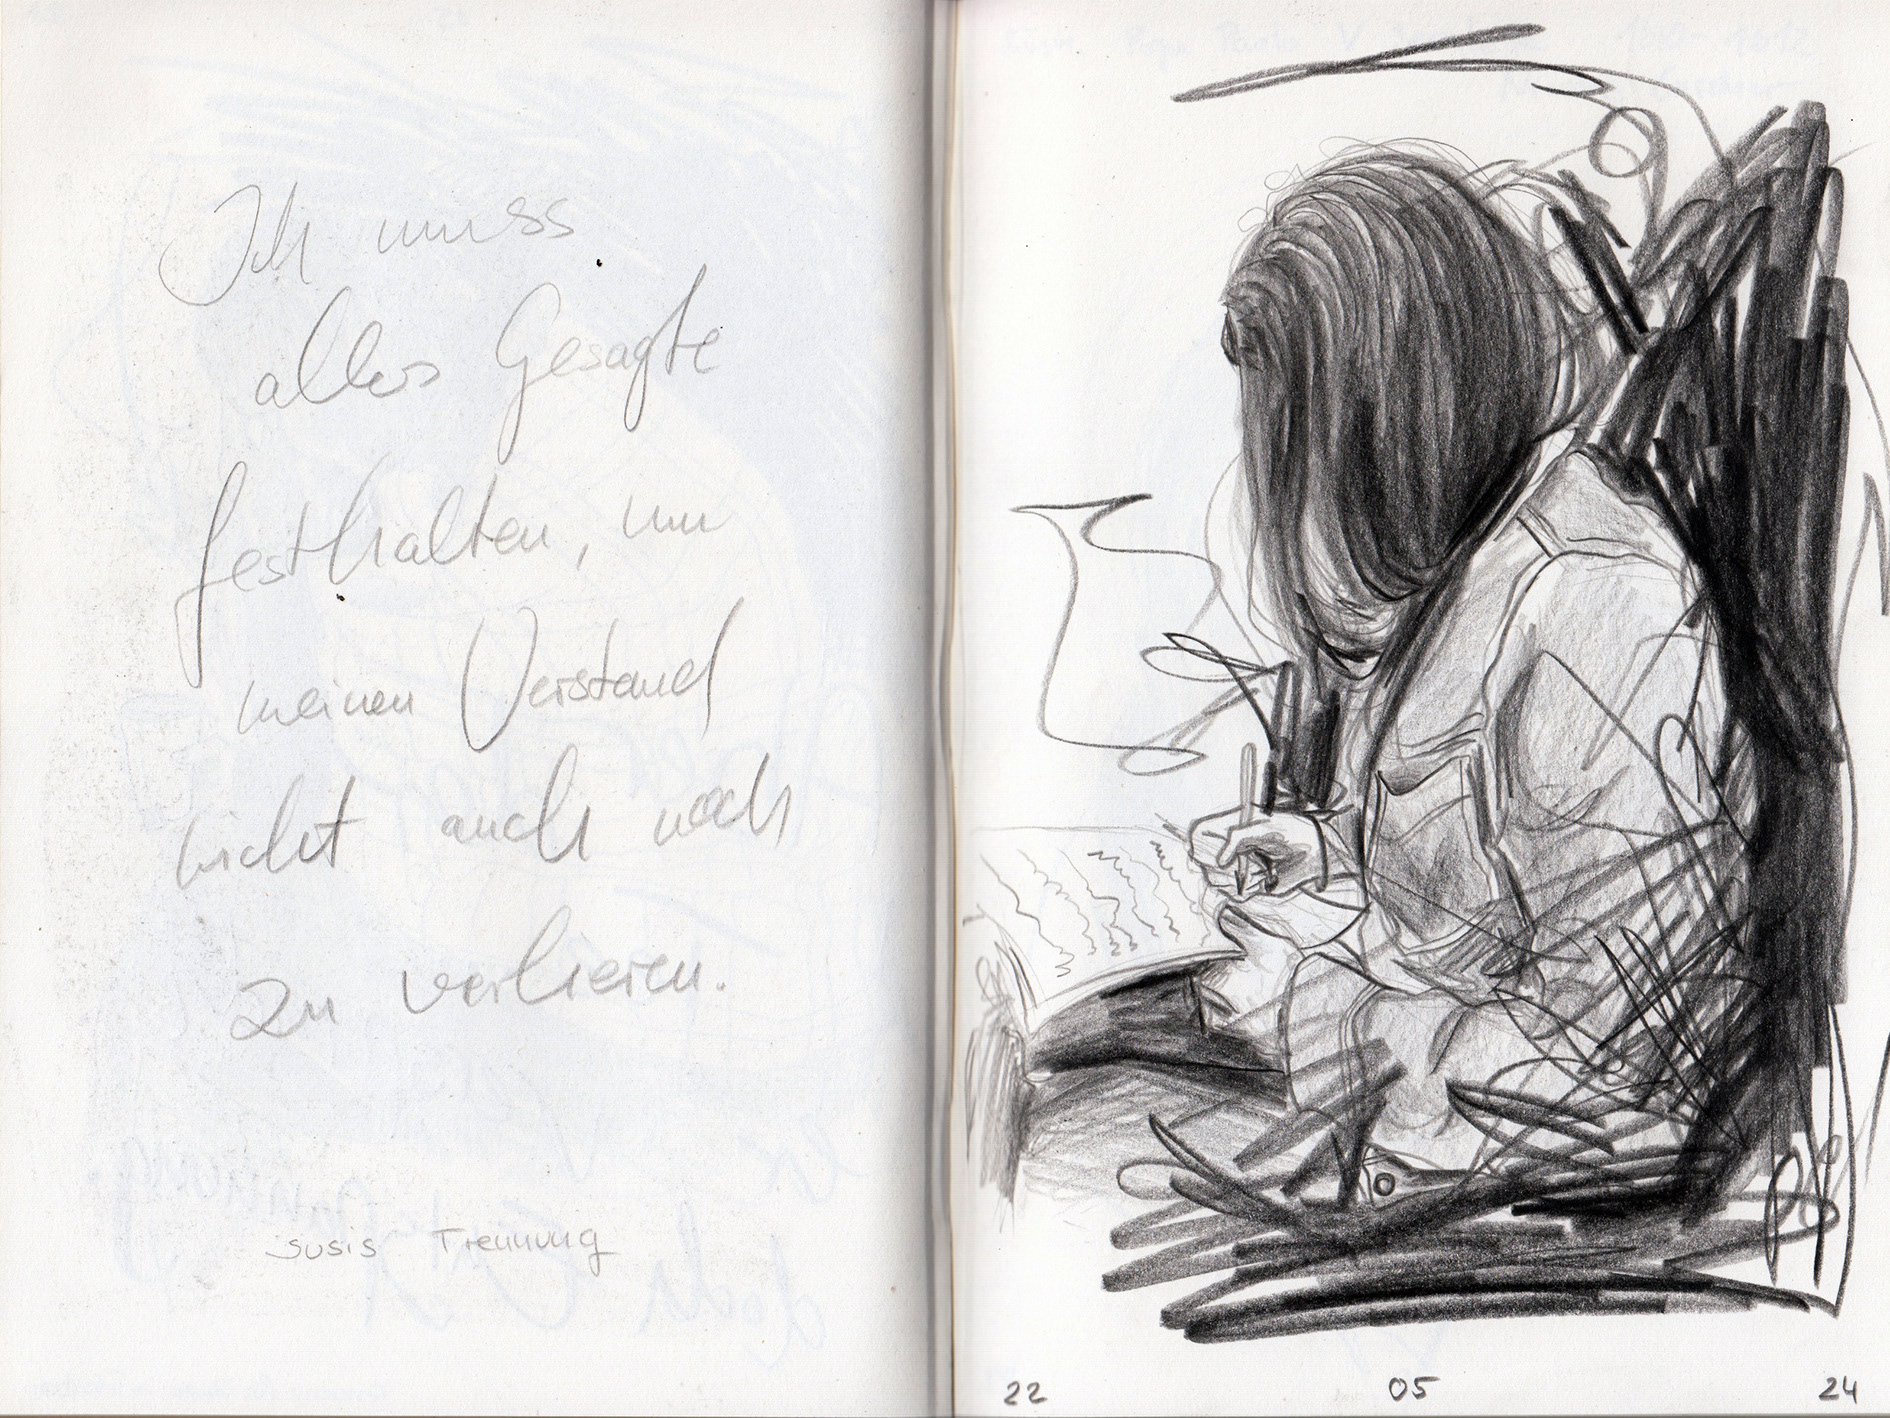 Ich muss
alles Gesagte
festhalten, um
meinen Verstand
nicht auch noch
zu verlieren.
susis Trennung
22 05 24